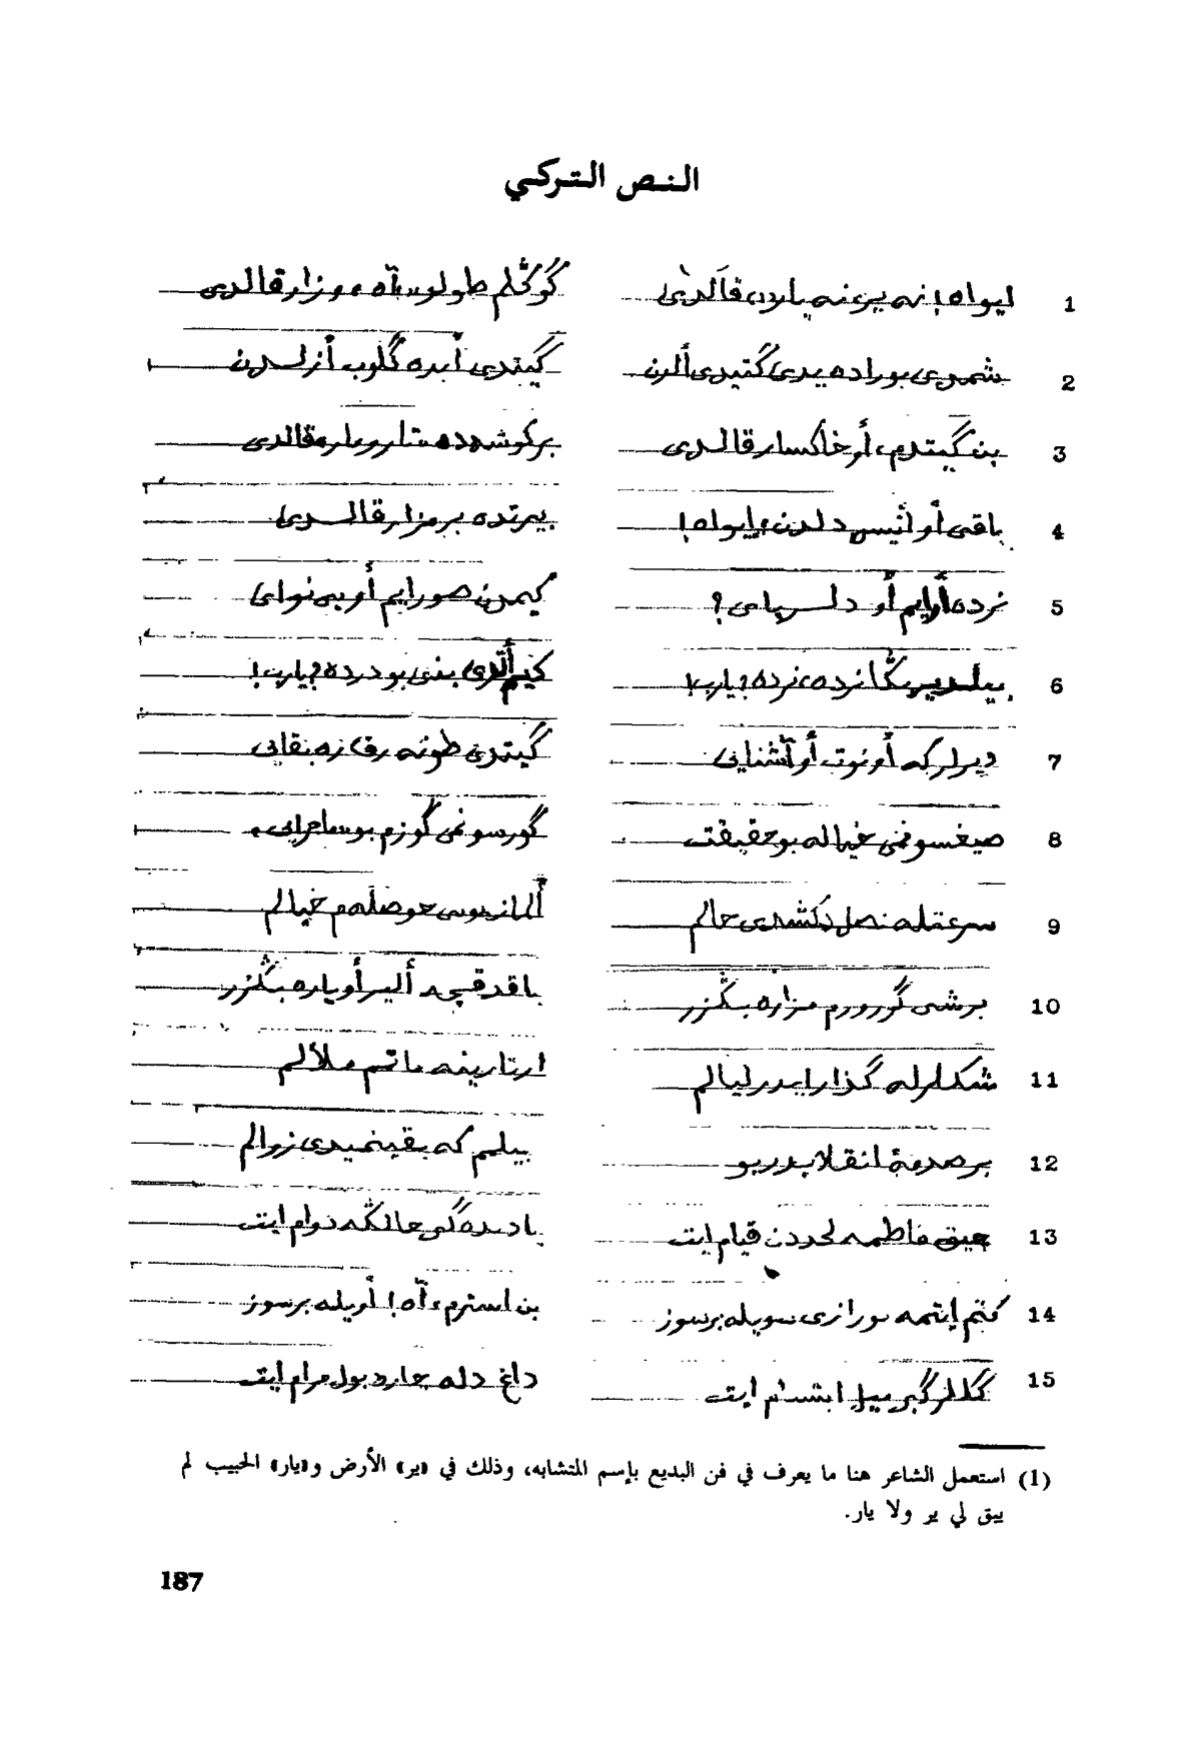 النص التركي
1 ايواه! نه ير، نه يار قالدى گوڭلم طولو آه و زار قالدى
2 شمدى بوراده يدى گتيدى ألدن گيتدى أبده گلوب أزلدن
3 بن گيتدم، أو خاكسار قالدى بر كوشه ده تارومار قالدى
4 باقى أو أنيس دلدن، ايواه! بيرتده بر مزار قالدى
5 نرده أرايم أو دلربايى؟ كيمدن صورايم أو بى نوايى
6 بيلدير بڭا نرده، نرده؟ يارب كيم أتدى بنى بو درده؟ يارب!
7 ديرلر كه أونوت أو آشنايى گيتدى طوته رق ره بقايى
8 صيغسونمى خياله بو حقيقت گورسونمى گوزم بو ماجرايى.
9 سرعتله نصل دكشدى حالم ألماز بونى حوصله م خيالم
10 برشى گورورم مزاره بڭزر باقدقچه ألير أو ياره بڭزر
11 شكلرله گذار ايدر ليالم ارتارينه ماتم ملالم
12 بر صدمۀ انقلابدر بو بيلم كه يقينميدى زوالم
13 چيق فاطمه لحددن قيام ايت يادمده كى حالڭه دوام ايت
14 كتم ايتمه بو رازى سويله بر سوز بن استرم، آه! أويله بر سوز
15 گللر گبى ميل ابتسام ايت داغ دله چاره بول مرام ايت
(1) استعمل الشاعر هنا ما يعرف في فن البديع بإسم المتشابه، وذلك في «ير» الأرض و«يار» الحبيب لم
يبق لي ير ولا يار.
187